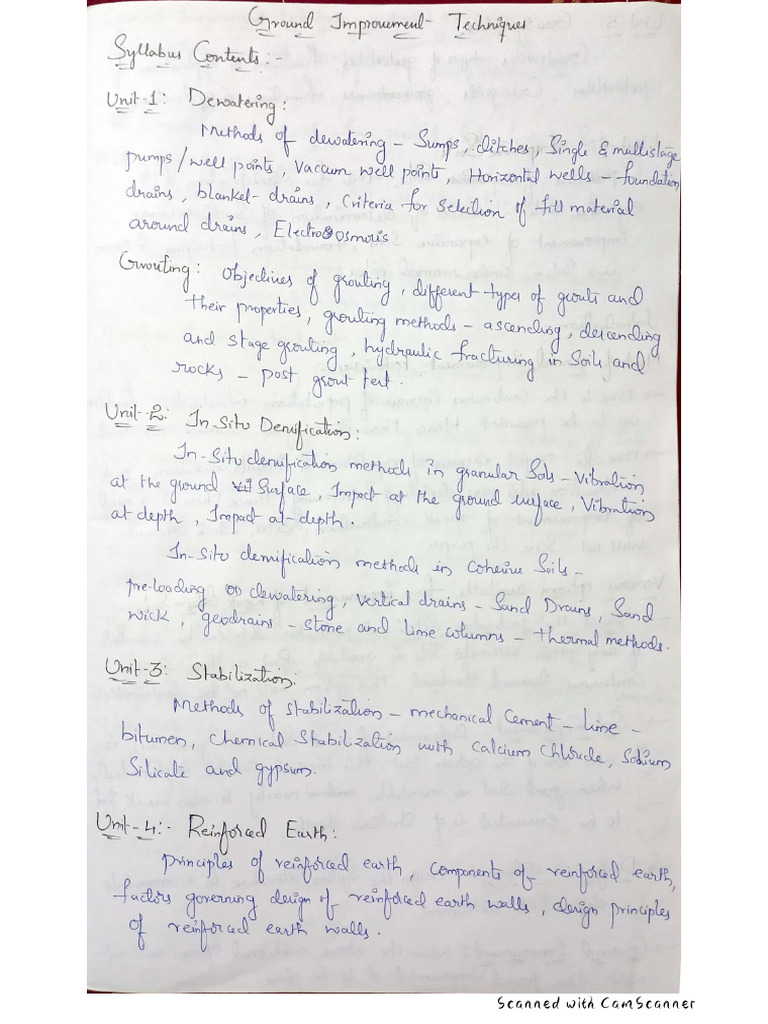 Ground Improvement Techniques
Syllabus Contents:-
Unit-1: Dewatering:
Methods of dewatering - Sumps, ditches, Single & multistage
pumps/well points, Vaccum well points, Horizontal wells - foundation
drains, blanket-drains, Criteria for selection of fill material
around drains, Electro osmosis
Grouting: Objectives of grouting, different types of grouts and
their properties, grouting methods - ascending, descending
and stage grouting, hydraulic fracturing in soils and
rocks - post grout test.
Unit-2: In-Situ Densification:
In-situ densification methods in granular Soils - Vibration
at the ground Surface, Impact at the ground surface, Vibration
at depth, Impact at-depth.
In-Situ densification methods in Cohesive Soils -
pre-loading or dewatering, vertical drains - Sand Drains, Sand
wick, geodrains - stone and lime columns - thermal methods.
Unit-3: Stabilization:
Methods of stabilization - mechanical Cement - Lime -
bitumen, chemical Stabilization with calcium chloride, Sodium
Silicate and gypsum.
Unit-4:- Reinforced Earth:
Principles of reinforced earth, components of reinforced earth,
factors governing design of reinforced earth walls, design principles
of reinforced earth walls.
Scanned with CamScanner